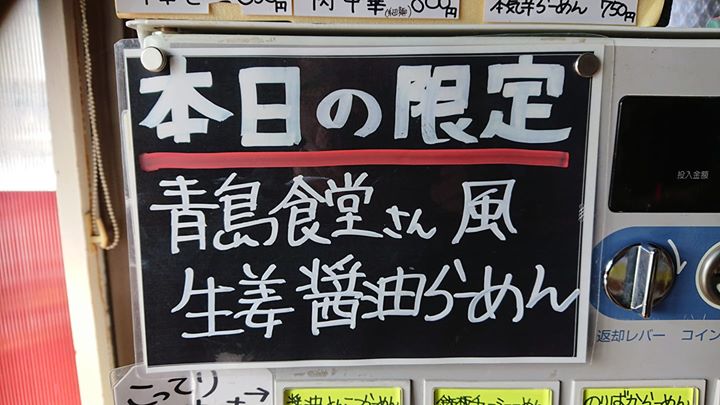 肉中華(細麺) 800円
本気辛らーめん 750円
本日の限定
青島食堂さん 風
生姜 醤油らーめん
投入金額
返却レバー コイン
こってり
のりばからーめん